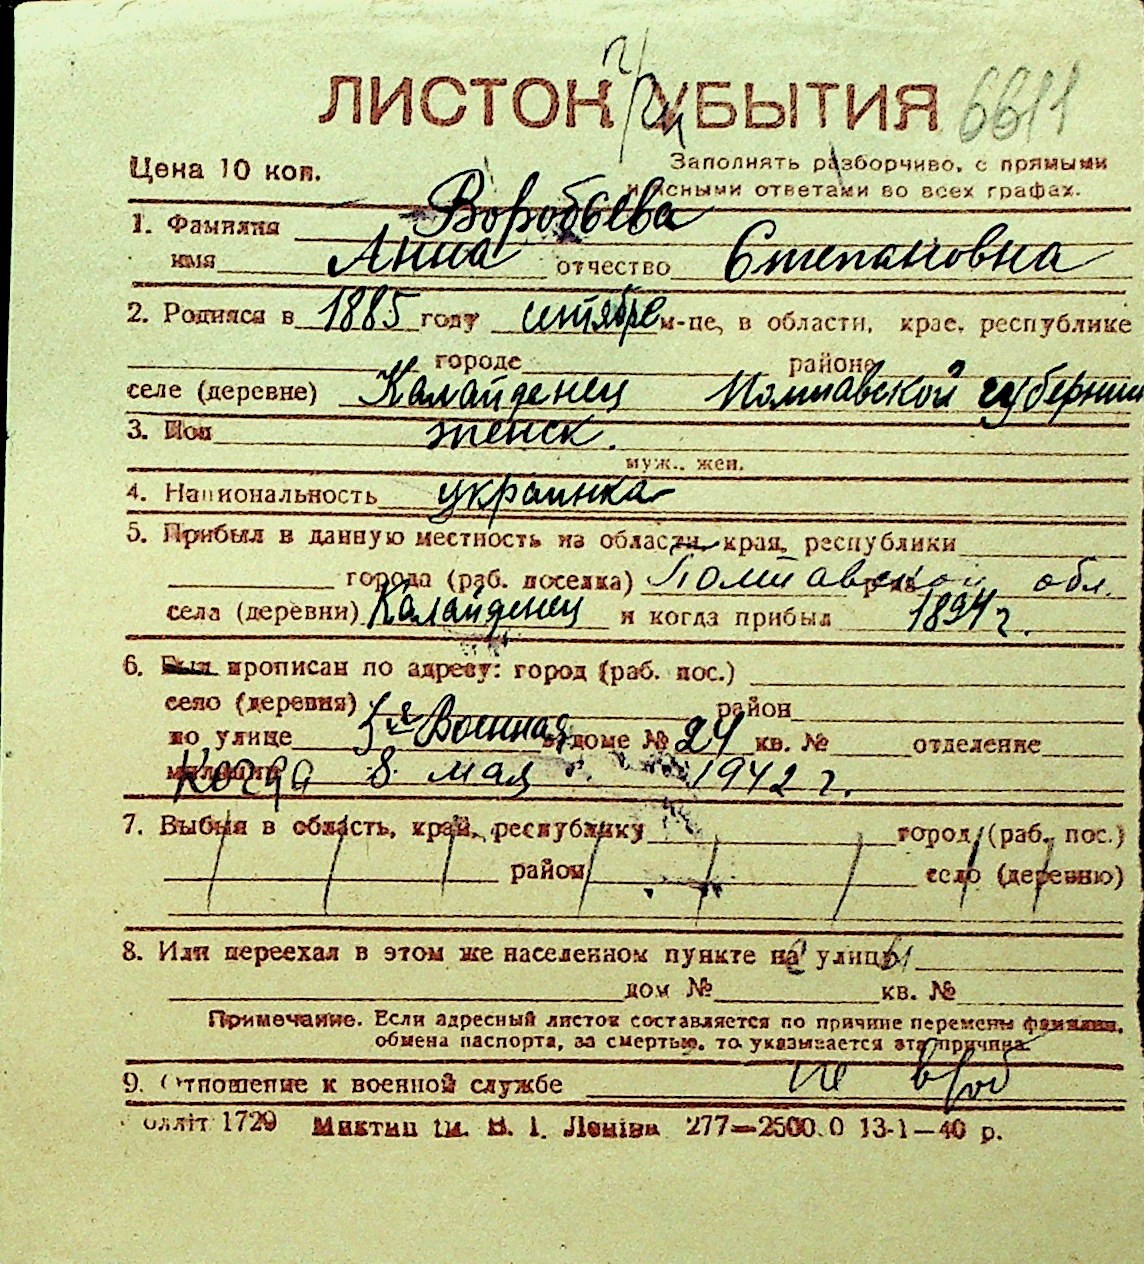 ЛИСТОК УБЫТИЯ 6611
Цена 10 коп.
Заполнять разборчиво, с прямыми
и ясными ответами во всех графах.
1. Фамилия Воробьева
имя Анна отчество Степановна
2. Родился в 1885 году м-це, в области, крае, республике
городе районе
селе (деревне) Калайденец Полтавской губернии
3. Пол женск.
муж., жен.
4. Национальность украинка
5. Прибыл в данную местность из области, края, республики
города (раб. поселка) Полтавской обл.
села (деревни) Калайденец и когда прибыл 1894 г.
6. Был прописан по адресу: город (раб. пос.)
село (деревня) район
по улице 5я Военная в доме № 24 кв. № отделение
милиции Когда 8 мая 1942 г.
7. Выбыл в область, край, республику город (раб. пос.)
район село (деревню)
8. Или переехал в этом же населенном пункте на улицу
дом № кв. №
Примечание. Если адресный листок составляется по причине перемены фамилии,
обмена паспорта, за смертью, то указывается эта причина.
9. Отношение к военной службе не в/об
олліт 1729 Миктип ім. В. І. Леніна 277—2500.0 13-1—40 р.